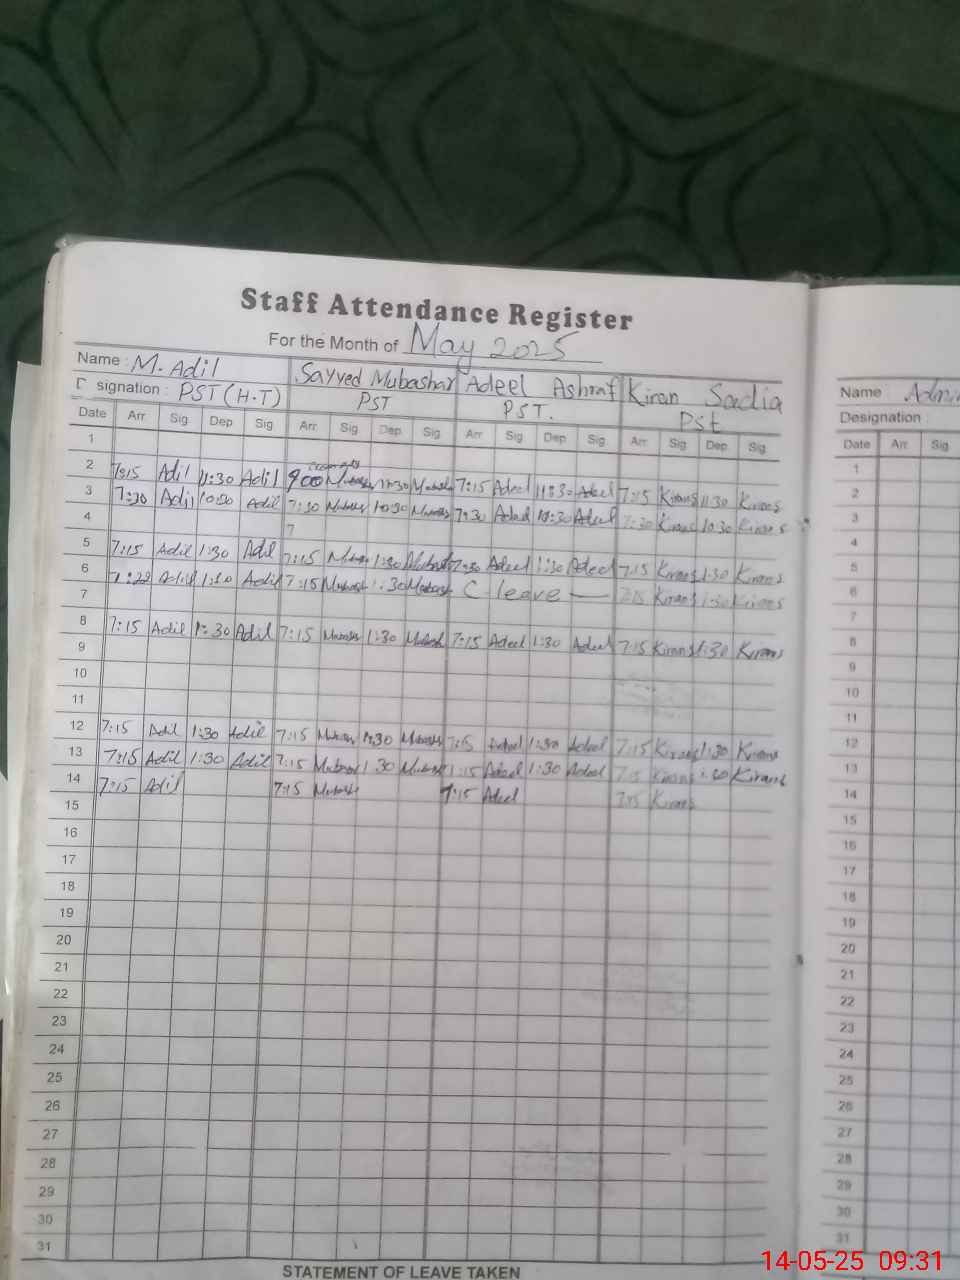 Staff Attendance Register
For the Month of May 2025
Name : M. Adil Sayyed Mubashar Adeel Ashraf Kiran Sadia
D signation : PST (H.T) PST PST. Pst
Date Arr. Sig Dep. Sig Arr. Sig Dep. Sig Arr. Sig Dep. Sig Arr. Sig Dep. Sig
1
2 7:15 Adil 11:30 Adil 900 11:30 7:15 Adeel 11:30 Adeel 7:15 Kirans 11:30 Kirans
3 7:30 Adil 10:30 Adil 7:30 10:30 7:30 Adeel 10:30 Adeel 7:30 Kirans 10:30 Kirans
4 7
5 7:15 Adil 1:30 Adil 7:15 1:30 7:30 Adeel 1:30 Adeel 7:15 Kirans 1:30 Kirans
6 Adil 1:30 Adil 7:15 1:30 C leave — 7:15 Kirans 1:30 Kirans
7
8 7:15 Adil 1:30 Adil 7:15 1:30 7:15 Adeel 1:30 Adeel 7:15 Kirans 1:30 Kirans
9
10
11
12 7:15 Adil 1:30 Adil 7:15 1:30 7:15 Adeel 1:30 Adeel 7:15 Kirans 1:30 Kirans
13 7:15 Adil 1:30 Adil 7:15 1:30 7:15 Adeel 1:30 Adeel 7:15 Kirans Kirans
14 7:15 Adil 7:15 7:15 Adeel 7:15 Kirans
15
16
17
18
19
20
21
22
23
24
25
26
27
28
29
30
31
STATEMENT OF LEAVE TAKEN
Name
Designation :
Date Arr. Sig
1
2
3
4
5
6
8
9
10
11
12
13
14
15
16
17
18
19
20
21
22
23
24
25
26
27
28
29
30
31
14-05-25 09:31